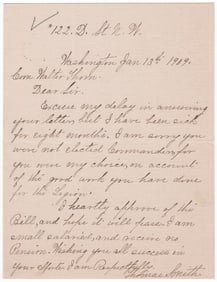 #122. D. St N. W.
Washington Jan 13th 1909.
Com. Walter Thorn
Dear Sir.
Excuse my delay in answering
your letter, but I have been sick
for eight months. I am sorry you
were not elected Commander, for
you were my choice, on account
of the good work you have done
for the Legion.
I heartly approve of the
Bill, and hope it will pass. I am
small salaried, and receive no
Pension. Wishing you all success in
your efforts. I am Respectfully
Thomas Smith